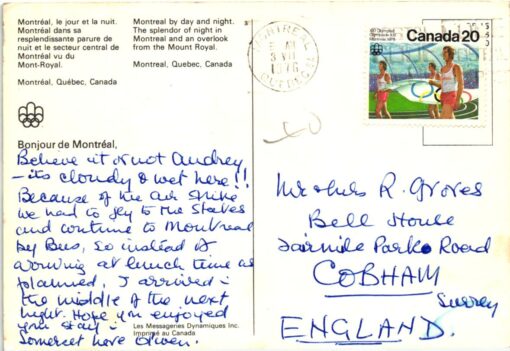 Montréal, le jour et la nuit.
Montréal dans sa
resplendissante parure de
nuit et le secteur central de
Montréal vu du
Mont-Royal.
Montréal, Québec, Canada
Montreal by day and night.
The splendor of night in
Montreal and an overlook
from the Mount Royal.
Montreal, Quebec, Canada
Bonjour de Montréal,
Believe it or not Audrey
- its cloudy & wet here!!
Because of the air strike
we had to fly to the States
and continue to Montreal
by Bus, so instead of
arriving at lunch time as
planned, I arrived in
the middle of the next
night. Hope you enjoyed
your stay in
Somerset love Owen.
Les Messageries Dynamiques Inc.
Imprimé au Canada
MONTREAL
3 VII
1976
QUEBEC
Canada 20
Mr & Mrs R. Groves
Bell House
Fairmile Park Road
COBHAM
Surrey
ENGLAND.